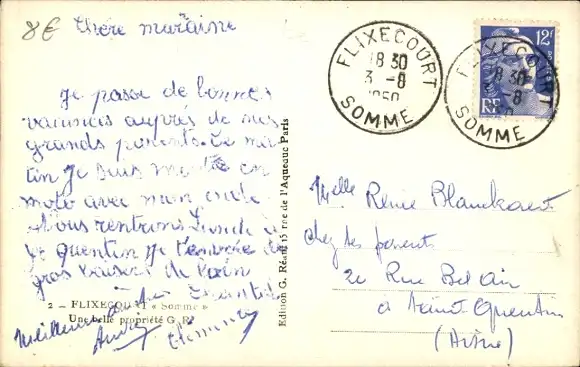 8€ chère marraine
Je passe de bonnes
vacances auprés de mes
grands parents. Ce ma-
tin je suis monté en
moto avec mon oncle
Nous rentrons Lundi à
St Quentin je t'envoie de
gros baisers de loin
Chantal
2 - FLIXECOURT « Somme »
Une belle propriété G. R.
Meilleures
Edition G. Réant 15 rue de l'Aqueduc Paris
FLIXECOURT
18 30
3 -8
1950
SOMME
12F
RF
FLIXECOURT
18 30
-8
SOMME
Melle Renée Blanckaert
chez ses parents
20 Rue Bel Air
à Saint Quentin
(Aisne)